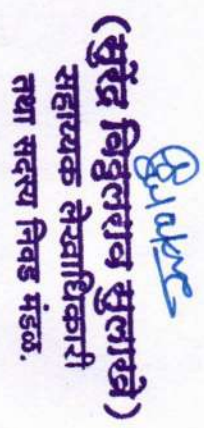 (सुरेंद्र विठ्ठलराव सुलाखे)
सहाय्यक लेखाधिकारी
तथा सदस्य निवड मंडळ.